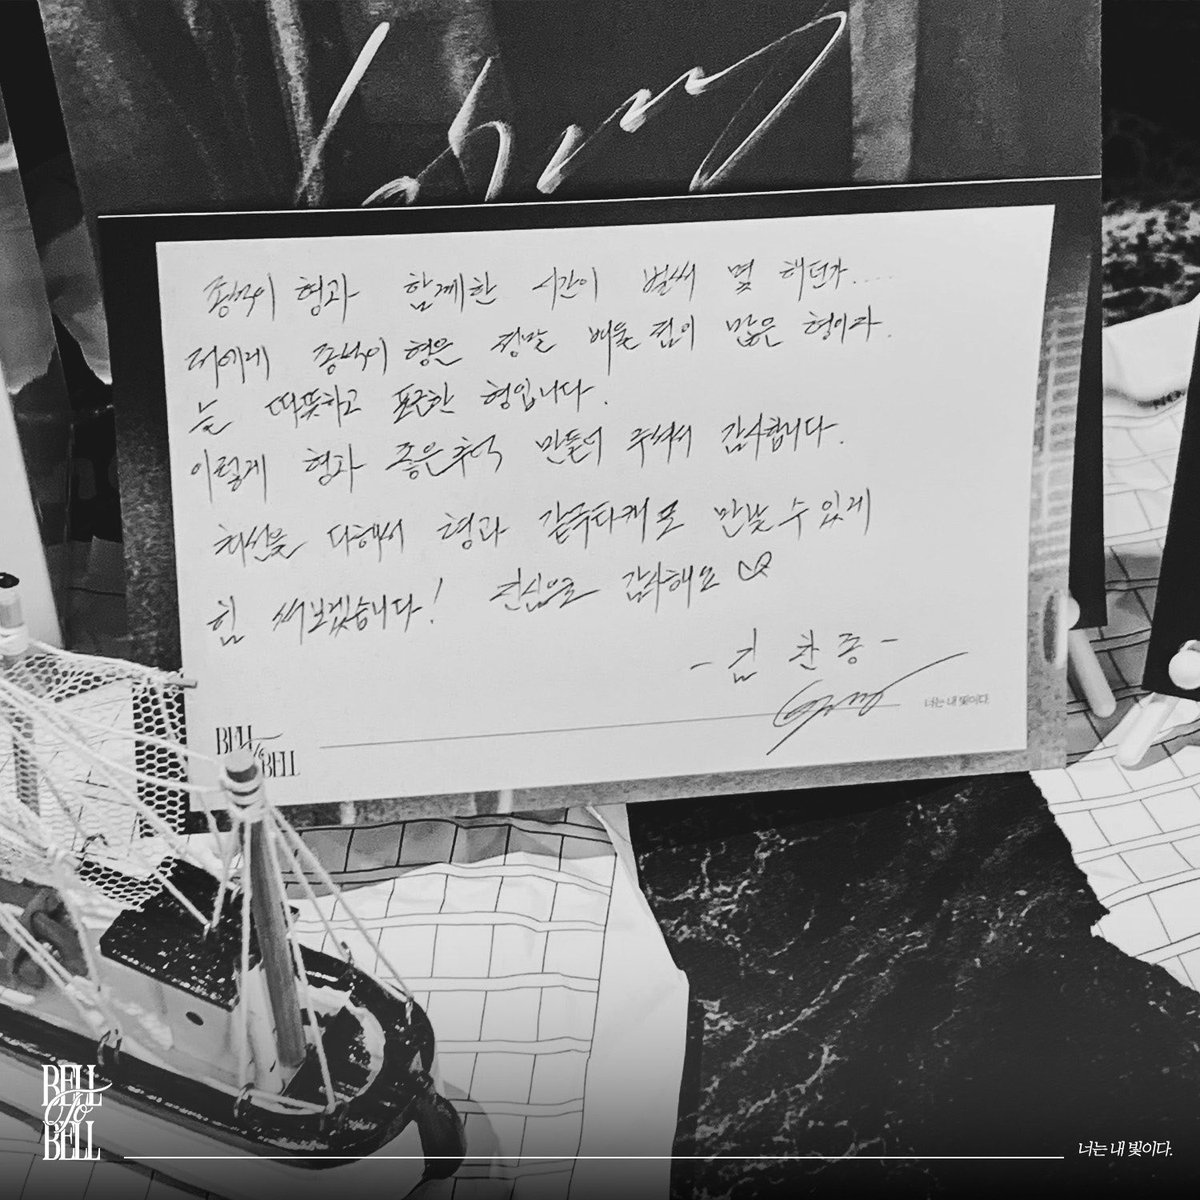 종석이 형과 함께한 시간이 벌써 몇 해던가....
저에게 종석이 형은 정말 배울 점이 많은 형이자.
늘 따뜻하고 포근한 형입니다.
이렇게 형과 좋은 추억 만들어 주셔서 감사합니다.
최선을 다해서 형과 같은 무대에 또 만날 수 있게
힘 써보겠습니다! 진심으로 감사해요 ♡
- 김 찬 종 -
BELL to BELL
너는 내 빛이다.
BELL
to
BELL
너는 내 빛이다.